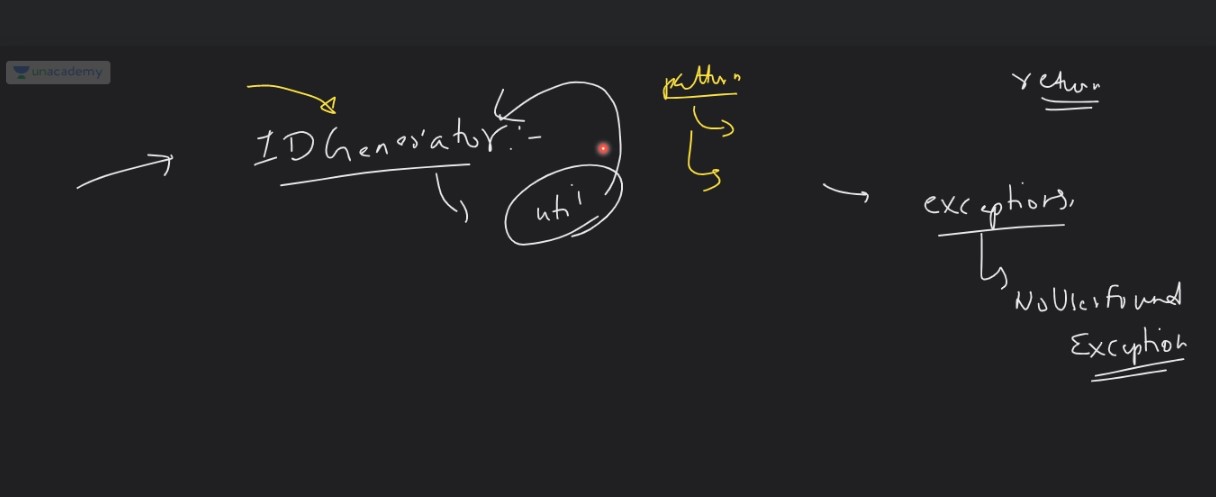 unacademy
IDGenerator:-
util
return
exceptions.
NoUserFound
Exception